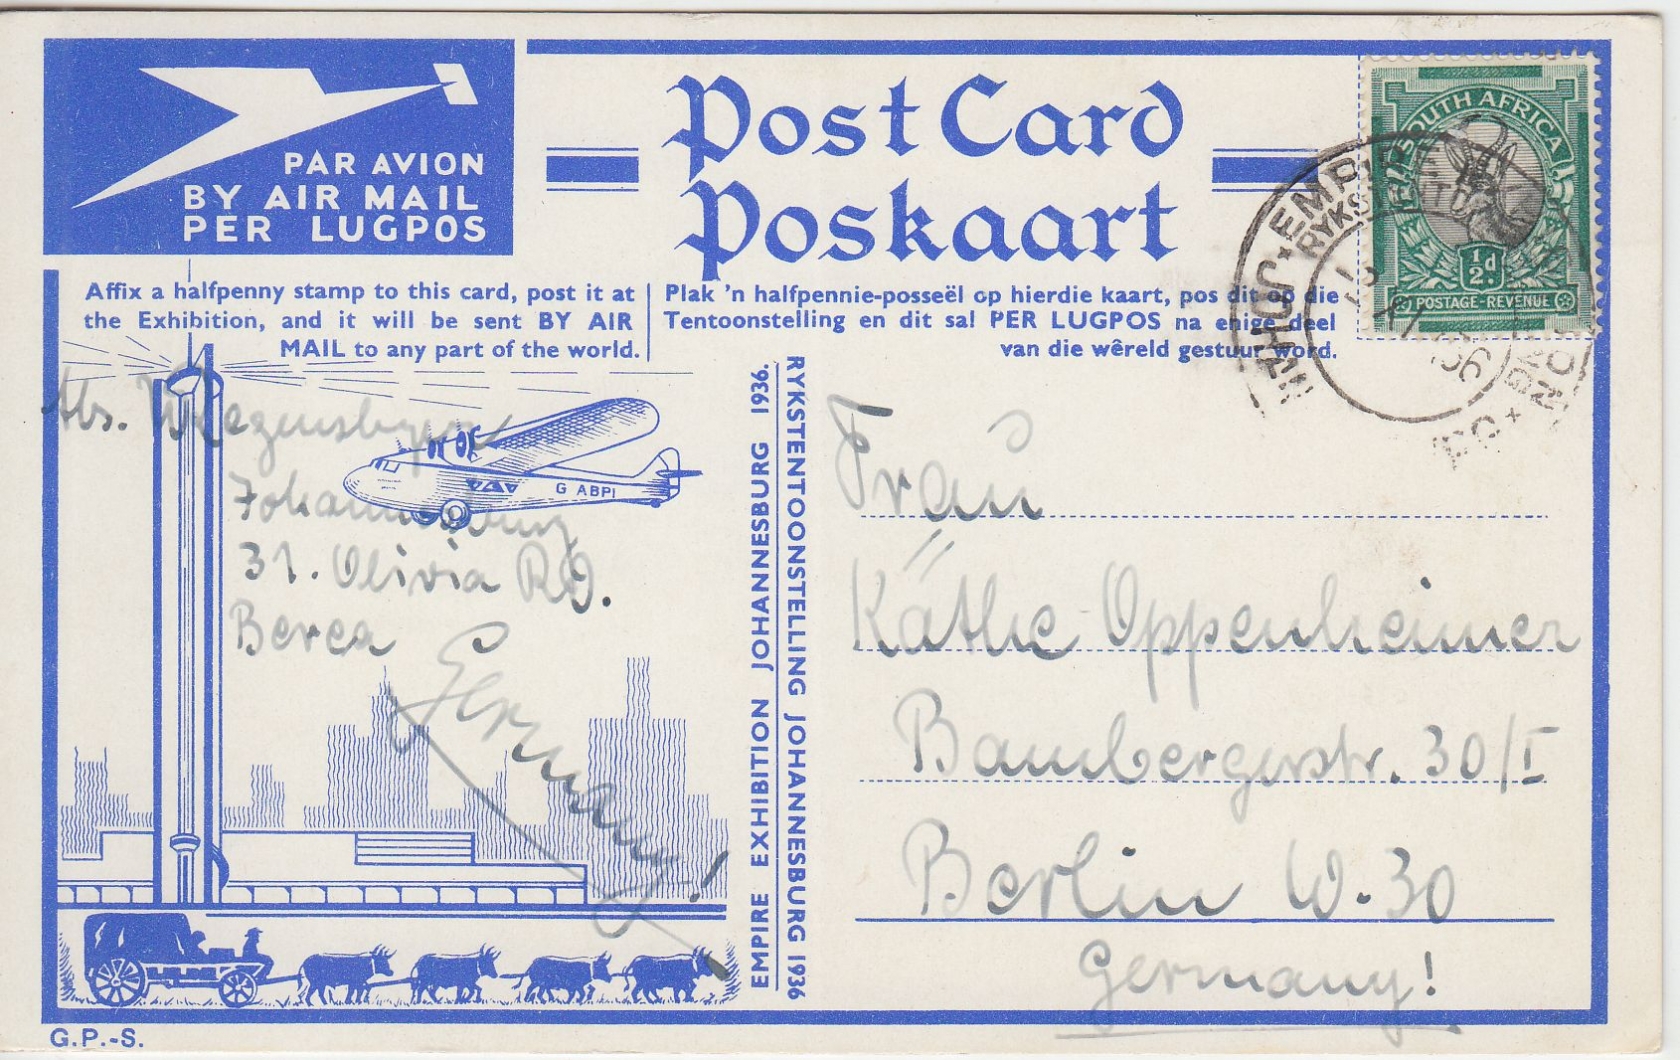 PAR AVION
BY AIR MAIL
PER LUGPOS
Post Card
Poskaart
Affix a halfpenny stamp to this card, post it at
the Exhibition, and it will be sent BY AIR
MAIL to any part of the world.
Plak 'n halfpennie-posseël op hierdie kaart, pos dit op die
Tentoonstelling en dit sal PER LUGPOS na enige deel
van die wêreld gestuur word.
SOUTH AFRICA
½d.
POSTAGE-REVENUE
EMPIRE
Abs.
Johannesburg
31. Olivia RD.
Berea
Germany!
G ABPI
EMPIRE EXHIBITION JOHANNESBURG 1936.
RYKSTENTOONSTELLING JOHANNESBURG 1936
Frau
Käthe Oppenheimer
Bambergerstr. 30/I
Berlin W. 30
Germany!
G.P.-S.